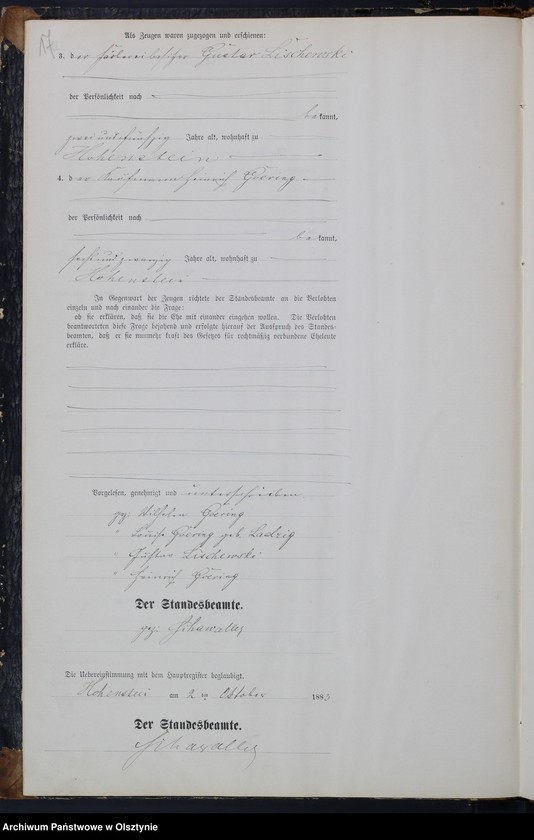 17
Als Zeugen waren zugezogen und erschienen:
3. der Gustav Lischewski
der Persönlichkeit nach
bekannt,
zweiundfünfzig Jahre alt, wohnhaft zu
Hohenstein
4. der Kaufmann Heinrich Goering
der Persönlichkeit nach
bekannt,
sechsundzwanzig Jahre alt, wohnhaft zu
Hohenstein
In Gegenwart der Zeugen richtete der Standesbeamte an die Verlobten
einzeln und nach einander die Frage:
ob sie erklären, daß sie die Ehe mit einander eingehen wollen. Die Verlobten
beantworteten diese Frage bejahend und erfolgte hierauf der Ausspruch des Standes-
beamten, daß er sie nunmehr kraft des Gesetzes für rechtmäßig verbundene Eheleute
erkläre.
Vorgelesen, genehmigt und unterschrieben
gez. Wilhelm Goering
" Louise Goering geb. Ladzig
" Gustav Lischewski
" Heinrich Goering
Der Standesbeamte.
gez. Schawaller
Die Uebereinstimmung mit dem Hauptregister beglaubigt.
Hohenstein am 2ten Oktober 1883
Der Standesbeamte.
Schawaller
Archiwum Państwowe w Olsztynie